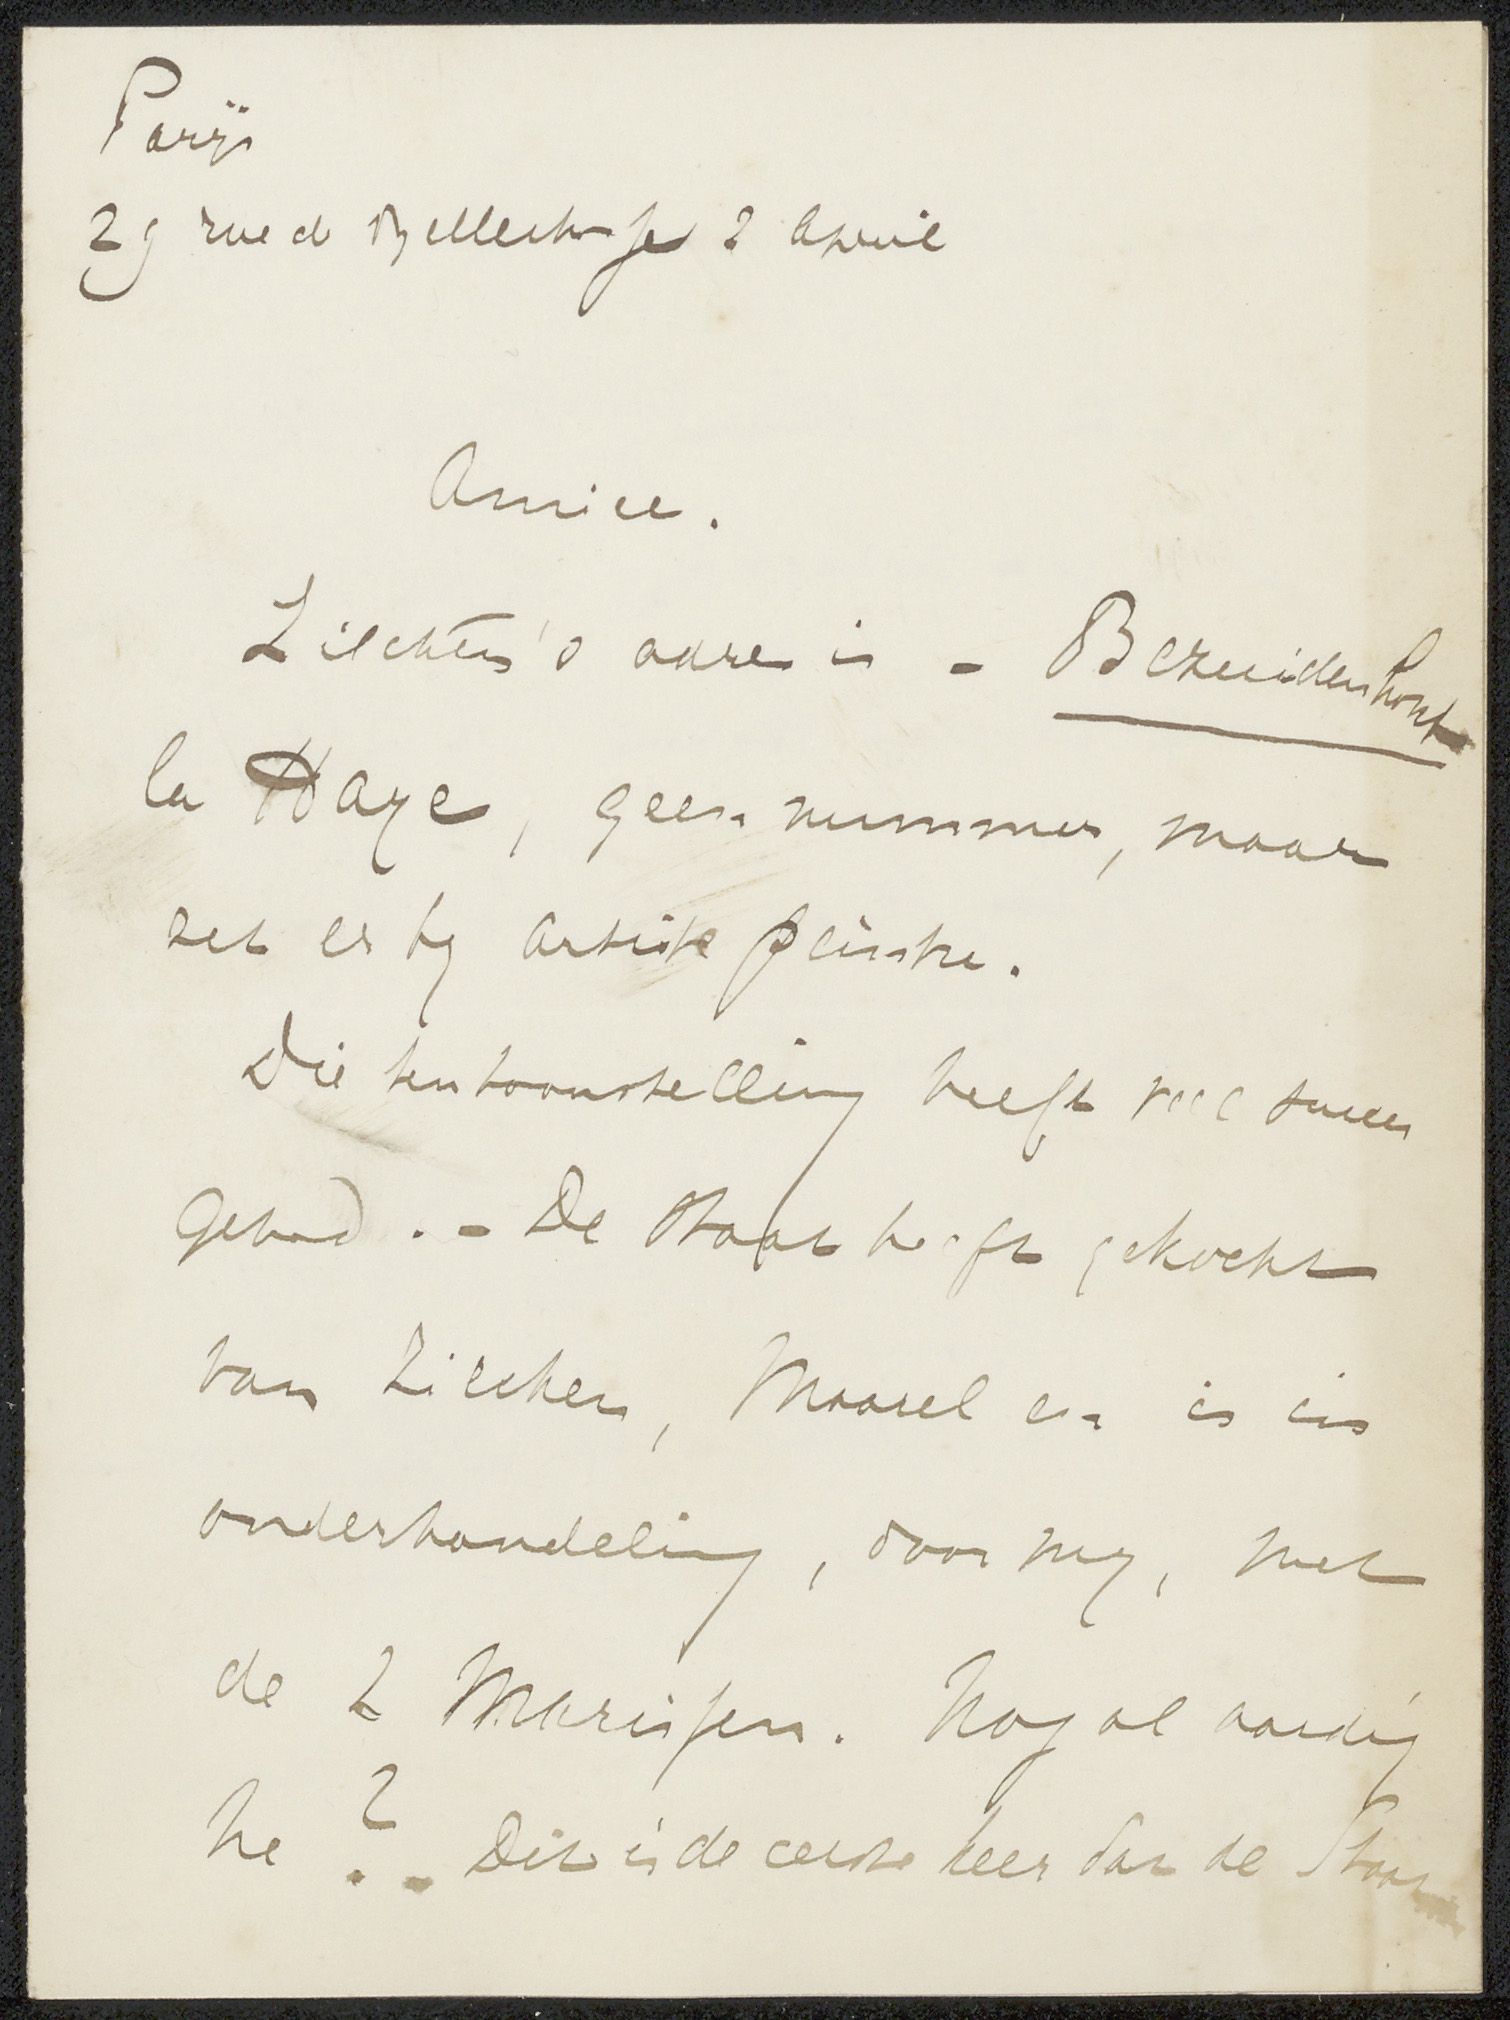 Parijs
29 rue de Bellechasse 2 April
Amice.
Zilcken's adres is - Bezuidenhout
la Haye, geen nummer, maar
zet er bij artiste peintre.
Die tentoonstelling heeft veel succes
gehad. - De Staat heeft gekocht
van Zilcken, Moorel en is in
onderhandeling, door mij, met
de 2 Marissen. Nog al aardig
he? - Dit is de eerste keer dat de Staat